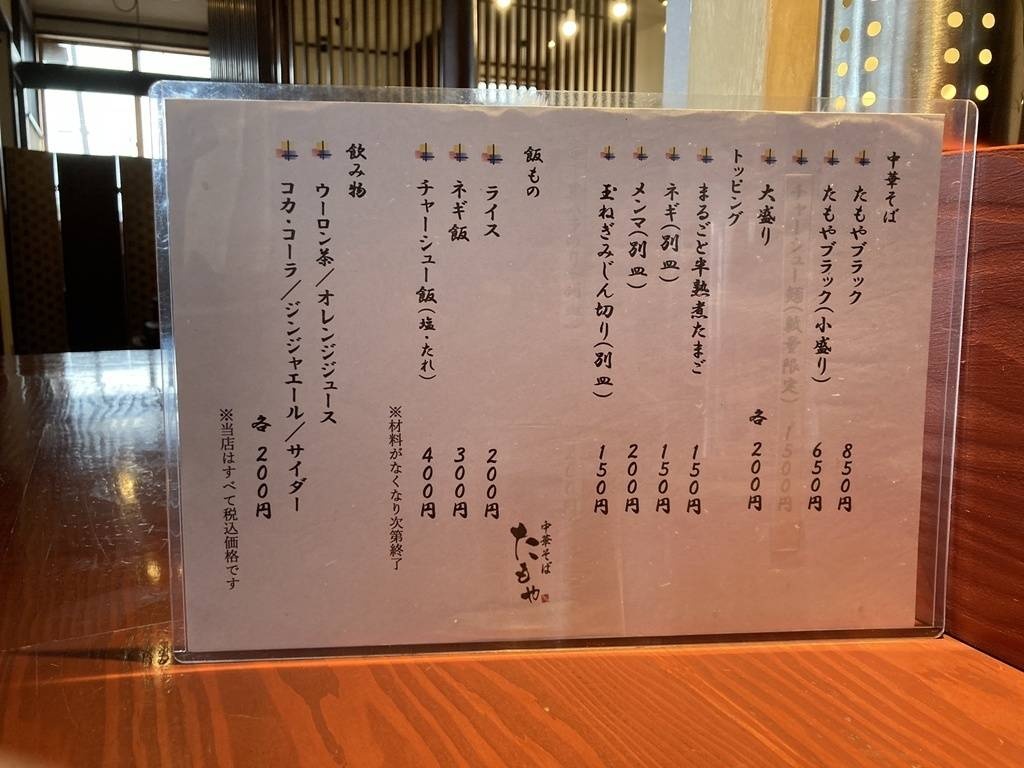 中華そば
たもやブラック 850円
たもやブラック(小盛り) 650円
チャーシュー麺(数量限定) 1500円
大盛り 各 200円
トッピング
まるごと半熟煮たまご 150円
ネギ(別皿) 150円
メンマ(別皿) 200円
玉ねぎみじん切り(別皿) 150円
飯もの
ライス 200円
ネギ飯 300円
チャーシュー飯(塩・たれ) 400円
※材料がなくなり次第終了
飲み物
ウーロン茶/オレンジジュース
コカ・コーラ/ジンジャエール/サイダー
各 200円
※当店はすべて税込価格です
中華そば
たもや